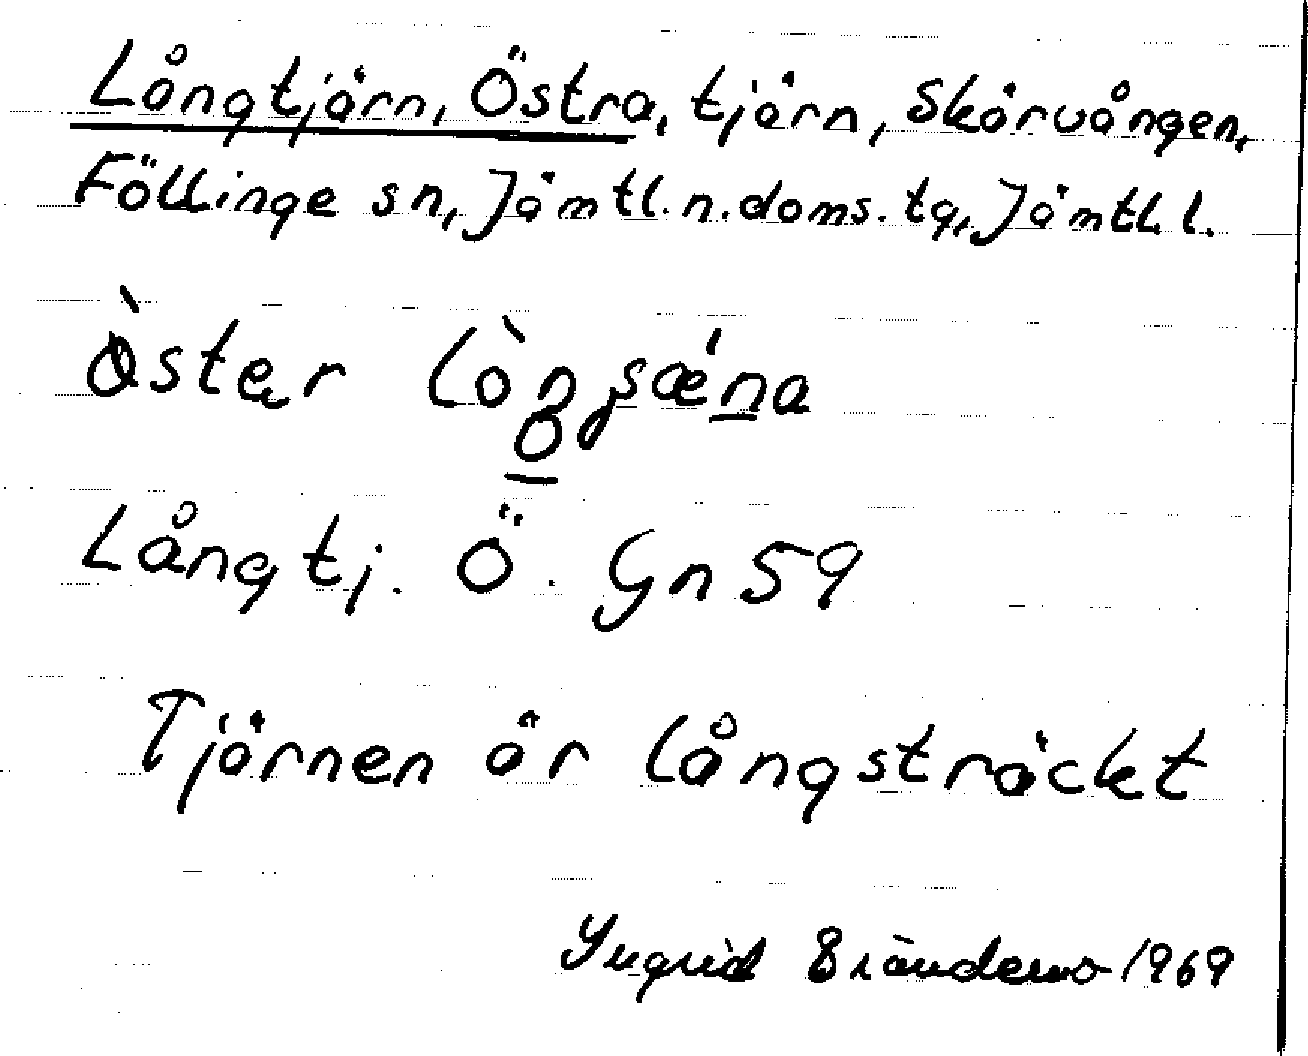 Långtjärn, Östra, tjärn, Skärvången,
Föllinge sn, Jämtl. n. doms. tg, Jämtl. l.
Långtj. Ö. Gn 59
Tjärnen är långsträckt
Ingrid Brändemo 1969